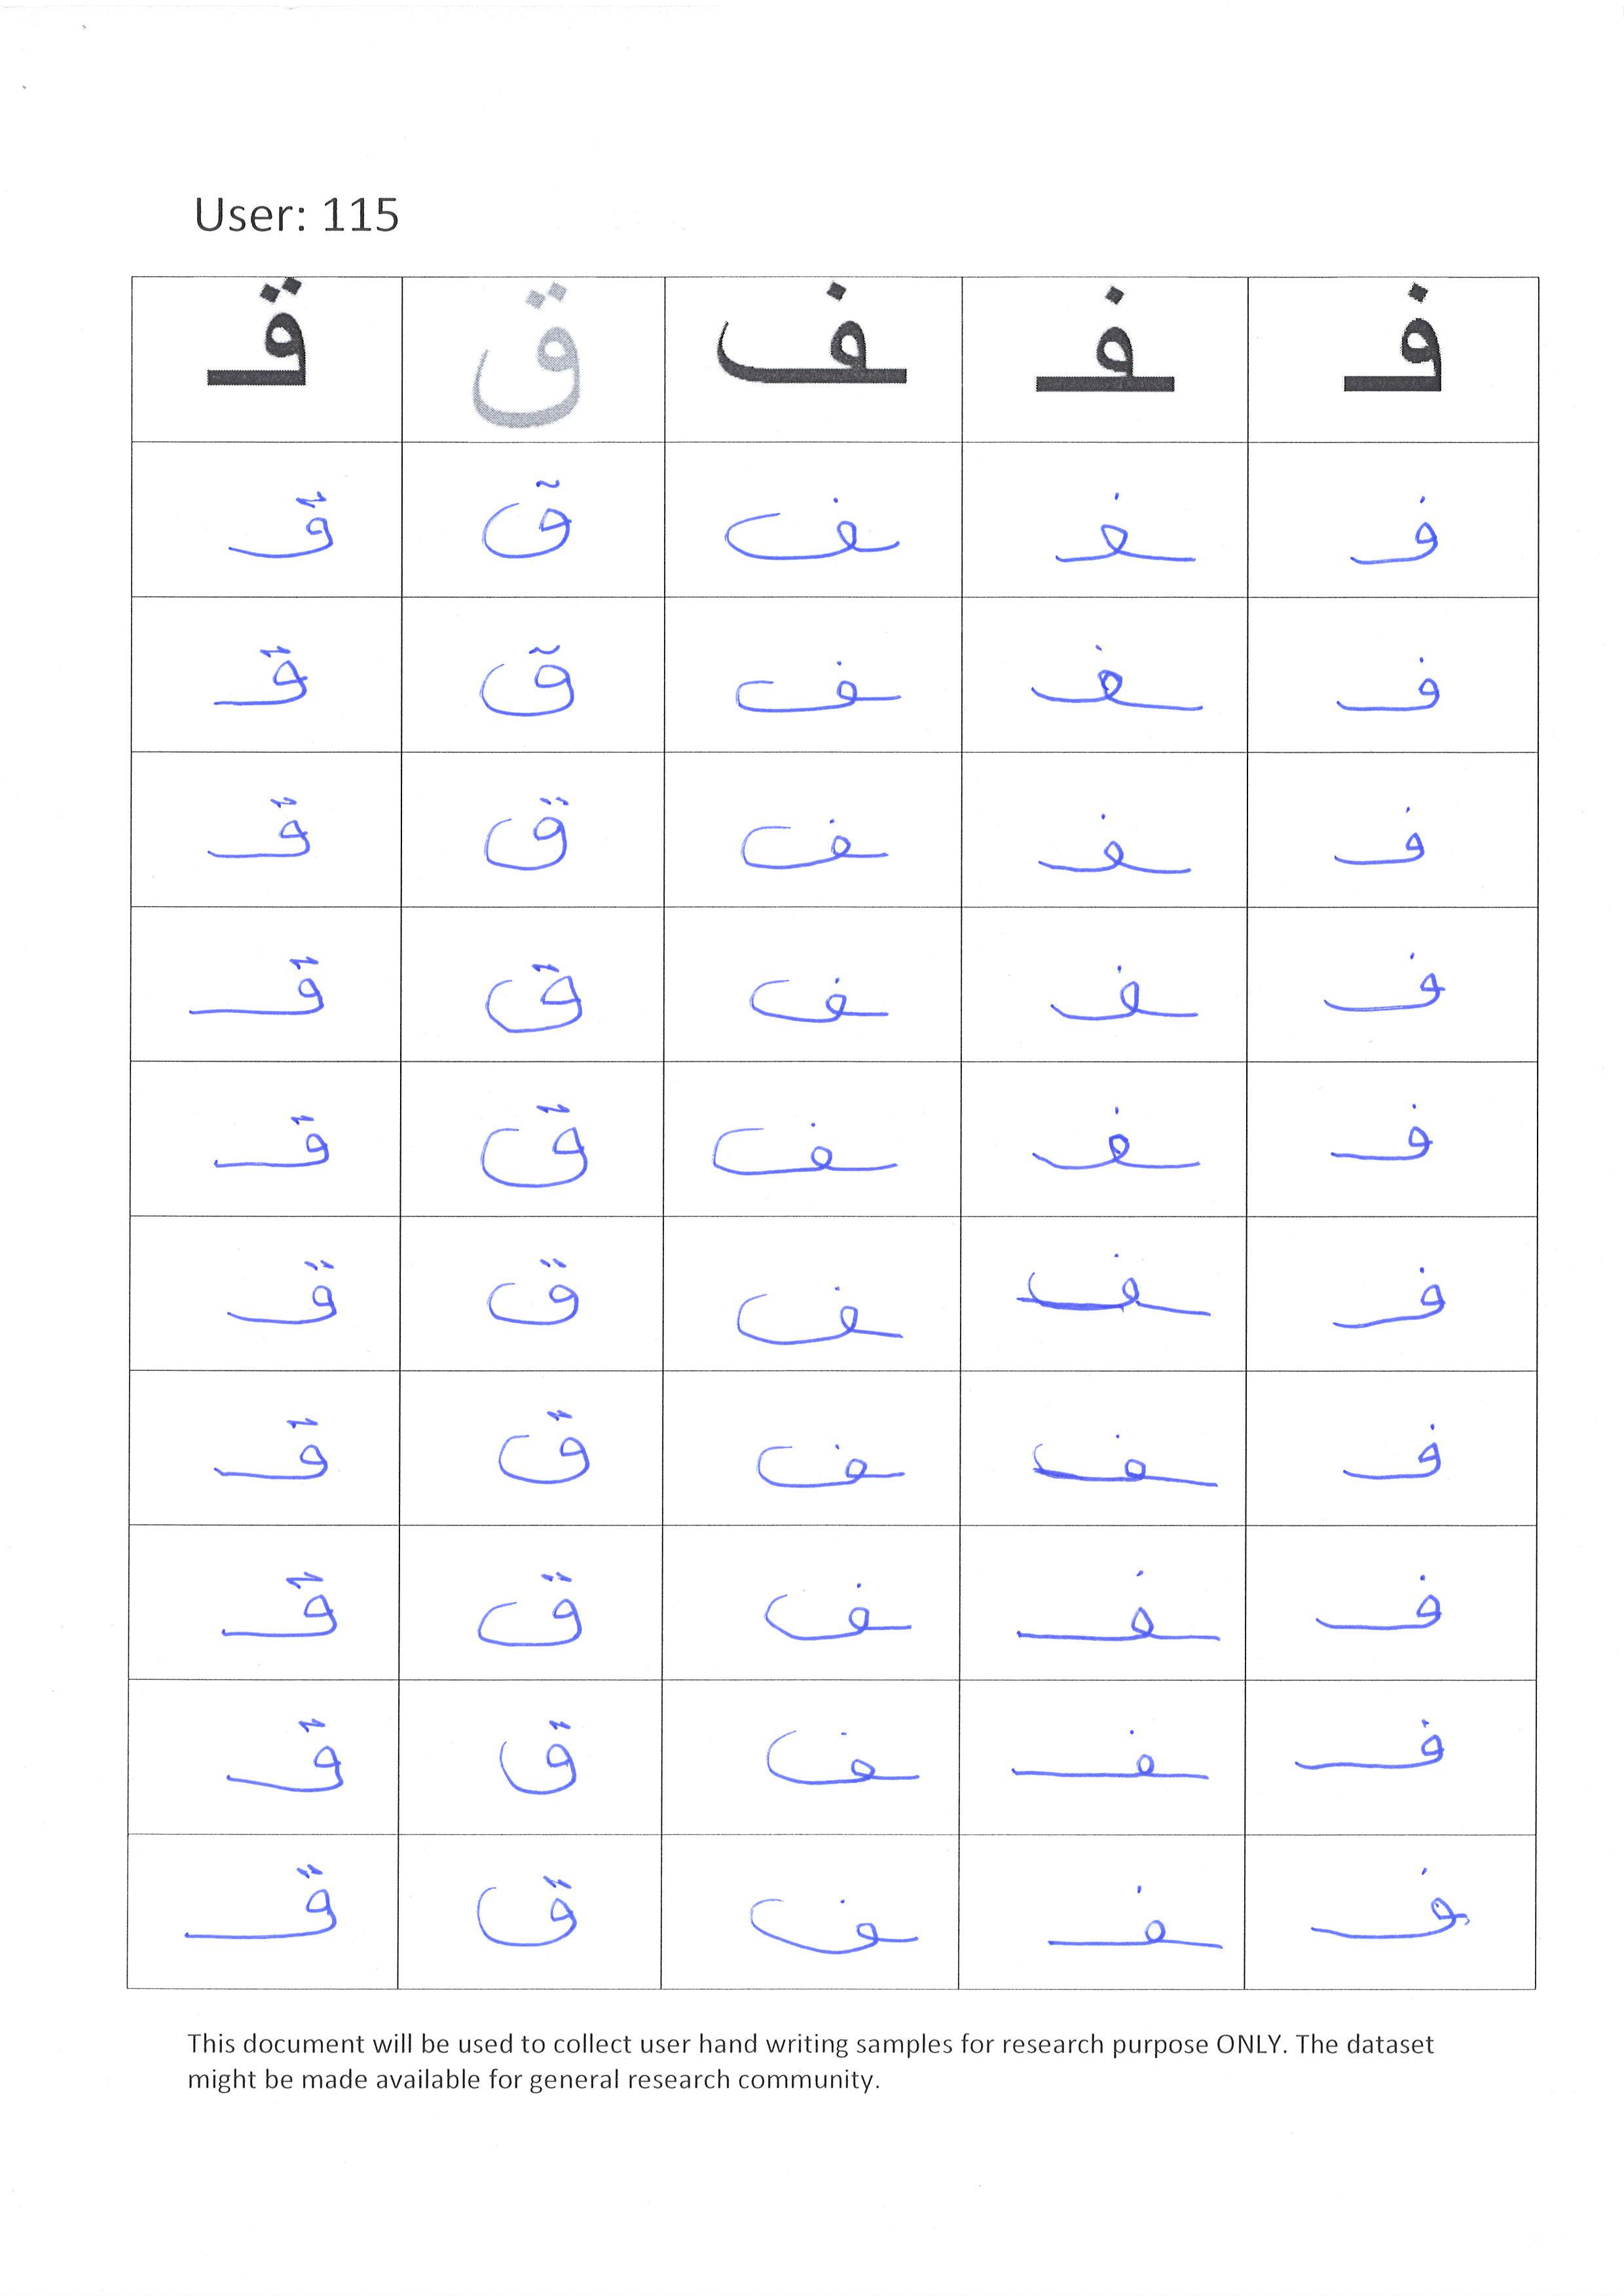 User: 115
قـ ق ـف ـفـ فـ
قـ ق ـف ـفـ فـ
قـ ق ـف ـفـ فـ
قـ ق ـف ـفـ فـ
قـ ق ـف ـفـ فـ
قـ ق ـف ـفـ فـ
قـ ق ـف ـفـ فـ
قـ ق ـف ـفـ فـ
قـ ق ـف ـفـ فـ
قـ ق ـف ـفـ فـ
قـ ق ـف ـفـ فـ
This document will be used to collect user hand writing samples for research purpose ONLY. The dataset
might be made available for general research community.